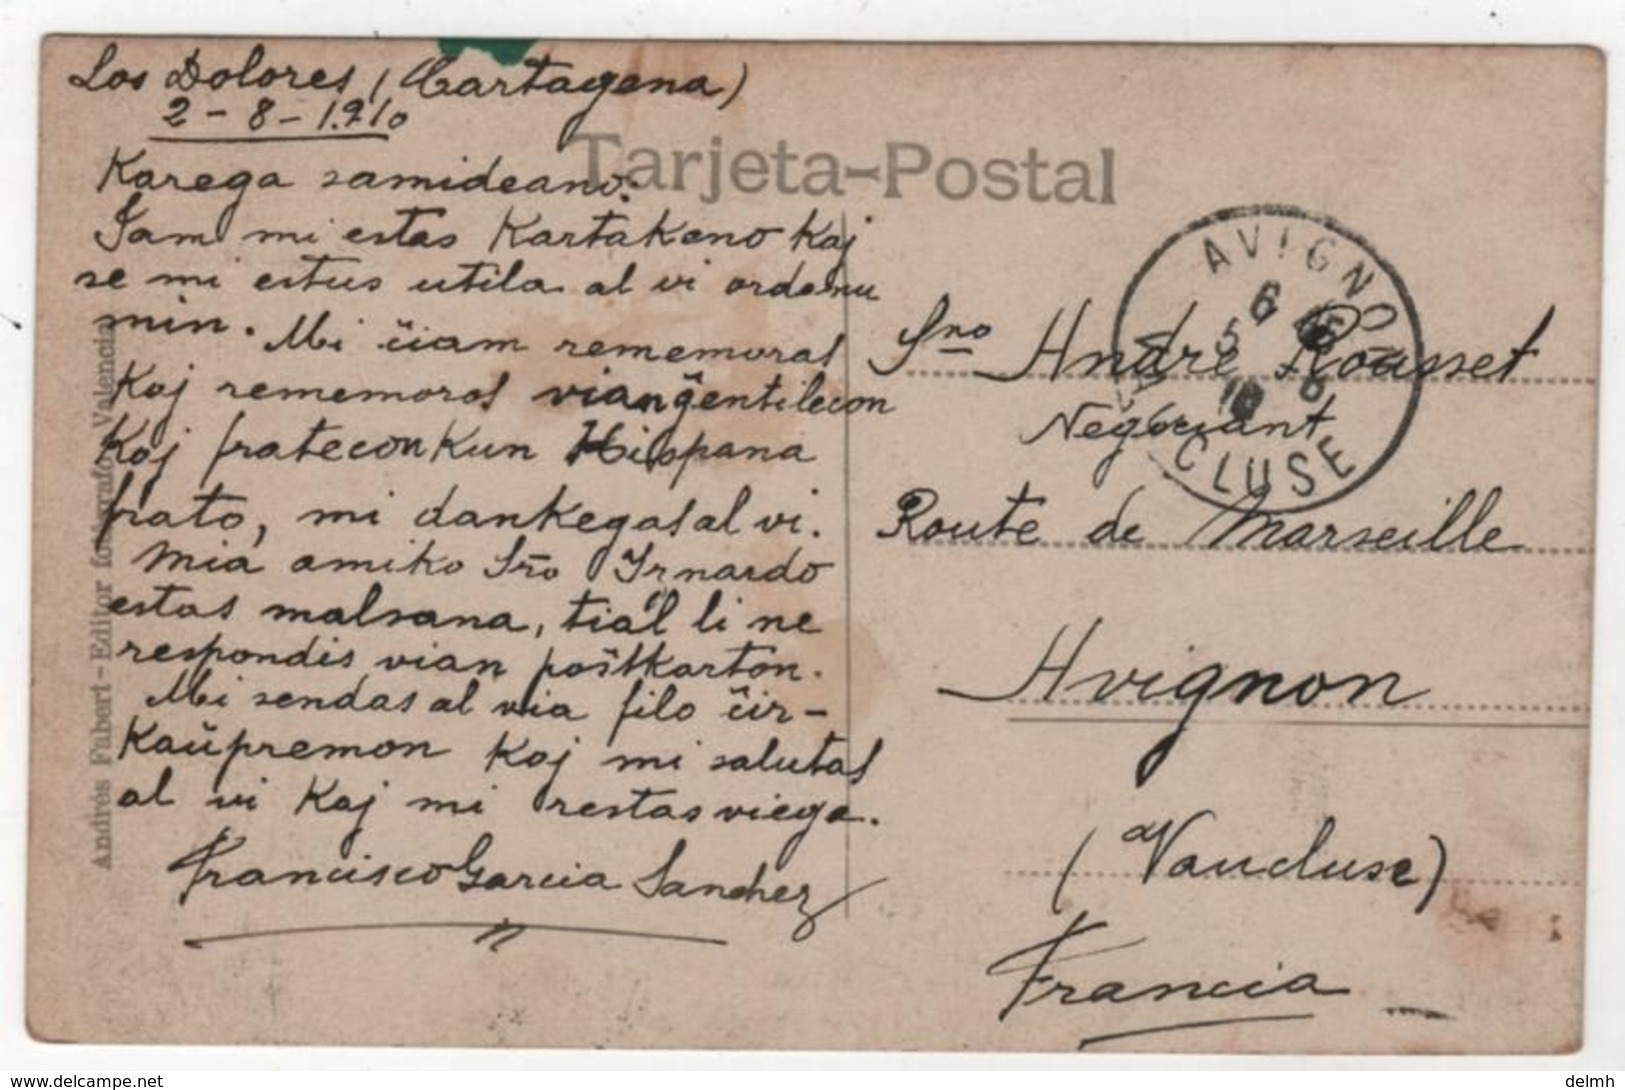 Los Dolores, (Cartagena)
2-8-1.910
Tarjeta-Postal
Karega samideano:
Jam mi estas Kartakeno kaj
se mi estus utila al vi ordonu
min. Mi ĉiam rememoras
kaj rememoros vian ĝentilecon
kaj fratecon kun Hispana
frato, mi dankegas al vi.
Mia amiko Sro
estas malsana, tial li ne
respondis vian poŝtkarton.
Mi sendas al via filo ĉir-
kaŭpremon kaj mi salutas
al vi kaj mi restas viega.
Francisco Garcia Sanchez
Andrés Fabert-Editor fotógrafo Valencia
AVIGNON
6
5 8
10
VAUCLUSE
Sro André Rousset
Negociant
Route de Marseille
Avignon
(Vaucluse)
Francia
delcampe.net
delmh